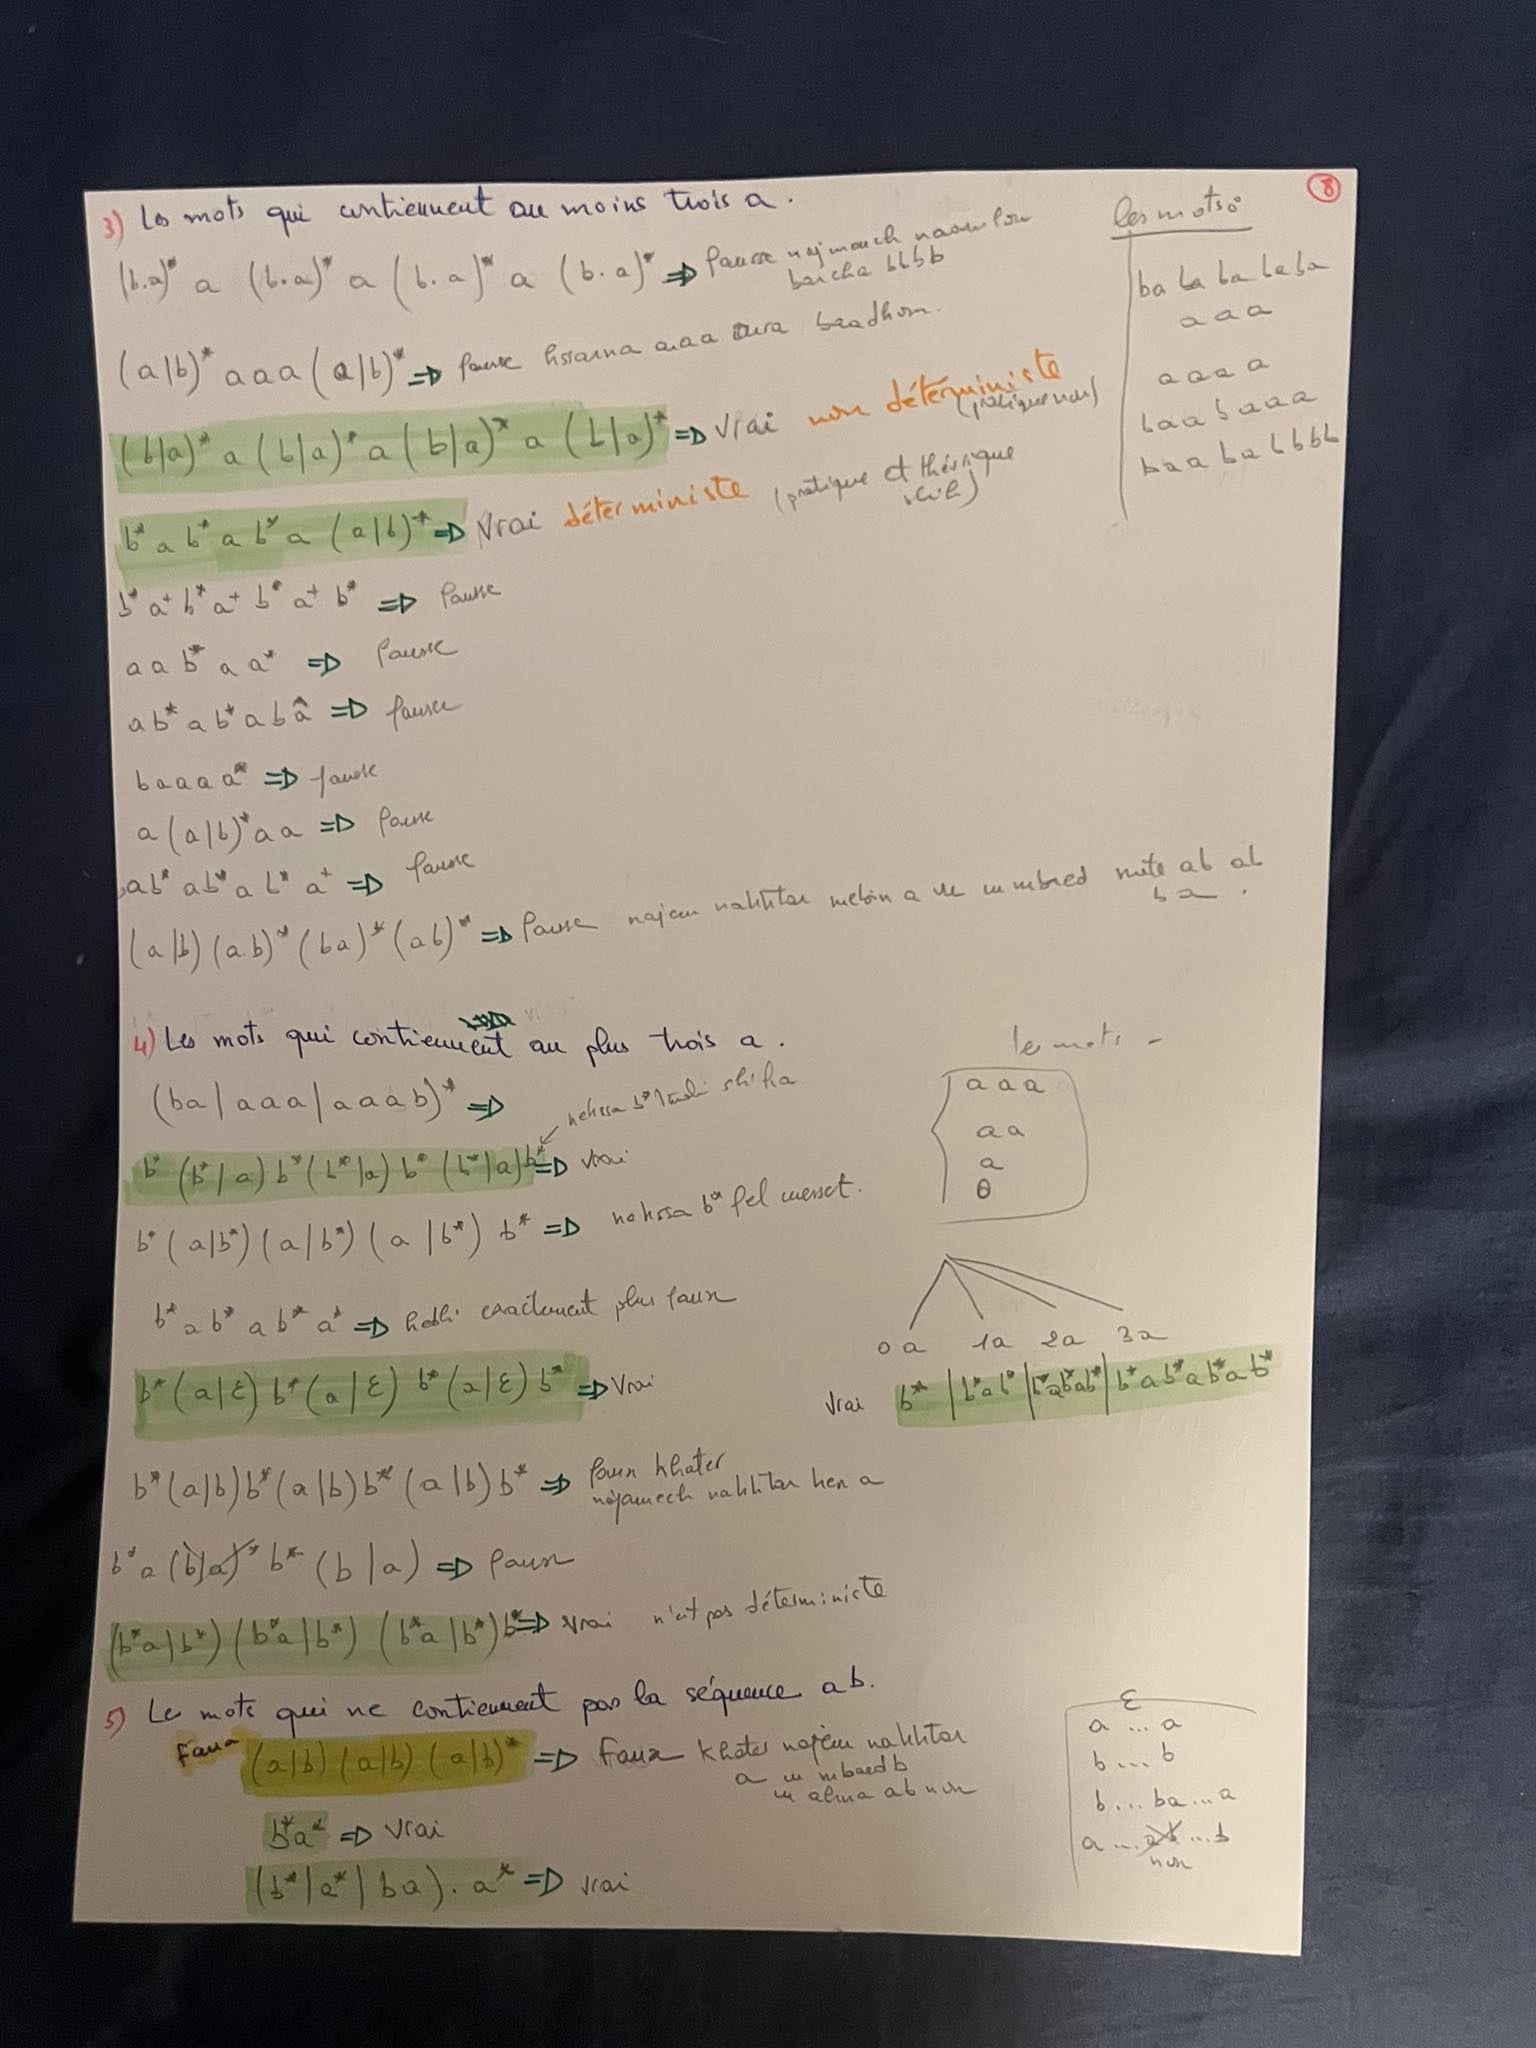 8
3) Les mots qui contiennent au moins trois a.
(b.a)* a (b.a)* a (b.a)* a (b.a)* => fausse najmouch
barcha bbbb
(a|b)* aaa (a|b)* => fausse aaa baadhom.
(b|a)* a (b|a)* a (b|a)* a (b|a)* => vrai non déterministe
(pratique non)
b* a b* a b* a (a|b)* => vrai déterministe (pratique et théorique
b* a+ b* a+ b* a+ b* => fausse
a a b* a a* => fausse
a b* a b* a b a => fausse
b a a a a* => fausse
a (a|b)* a a => fausse
a b* a b* a b* a+ => fausse
(a|b) (ab)* (ba)* (ab)* => fausse najem nakhtar a ab ab
ba.
les mots :
ba ba ba ba ba
a a a
a a a a
b a a b a a a
b a a b a b b b b
4) Les mots qui contiennent au plus trois a.
(ba | aaa | aaab)* =>
b* (b*|a) b* (b*|a) b* (b*|a) b* => vrai
b* (a|b*) (a|b*) (a|b*) b* => b* fel wesset.
b* a b* a b* a* => exactement
b* (a|ε) b* (a|ε) b* (a|ε) b* => vrai
b* (a|b) b* (a|b) b* (a|b) b* => khater
nakhtar a
b* a (b|a)* b* (b|a) => faux
(b*a|b*) (b*a|b*) (b*a|b*) b* => vrai n'est pas déterministe
les mots -
a a a
a a
a
θ
0a 1a 2a 3a
vrai b* | b*ab* | b*ab*ab* | b*ab*ab*ab*
5) Les mots qui ne contiennent pas la séquence ab.
Faux (a|b) (a|b) (a|b)* => Faux khater najem nakhtar
a w mbaed b
w ab non
b*a* => vrai
(b*|a*|ba).a* => vrai
ε
a ... a
b ... b
b ... ba ... a
a ... ab ... b
non